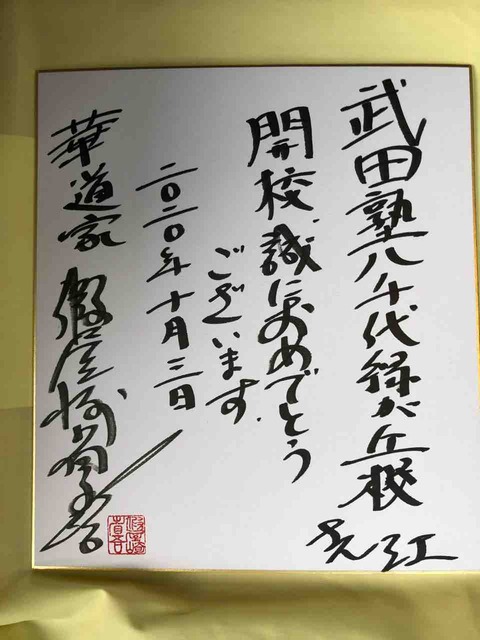 武田塾八千代緑が丘校
さん江
開校、誠におめでとう
ございます。
二〇二〇年十月三日
華道家 假屋崎省吾
假屋崎省吾